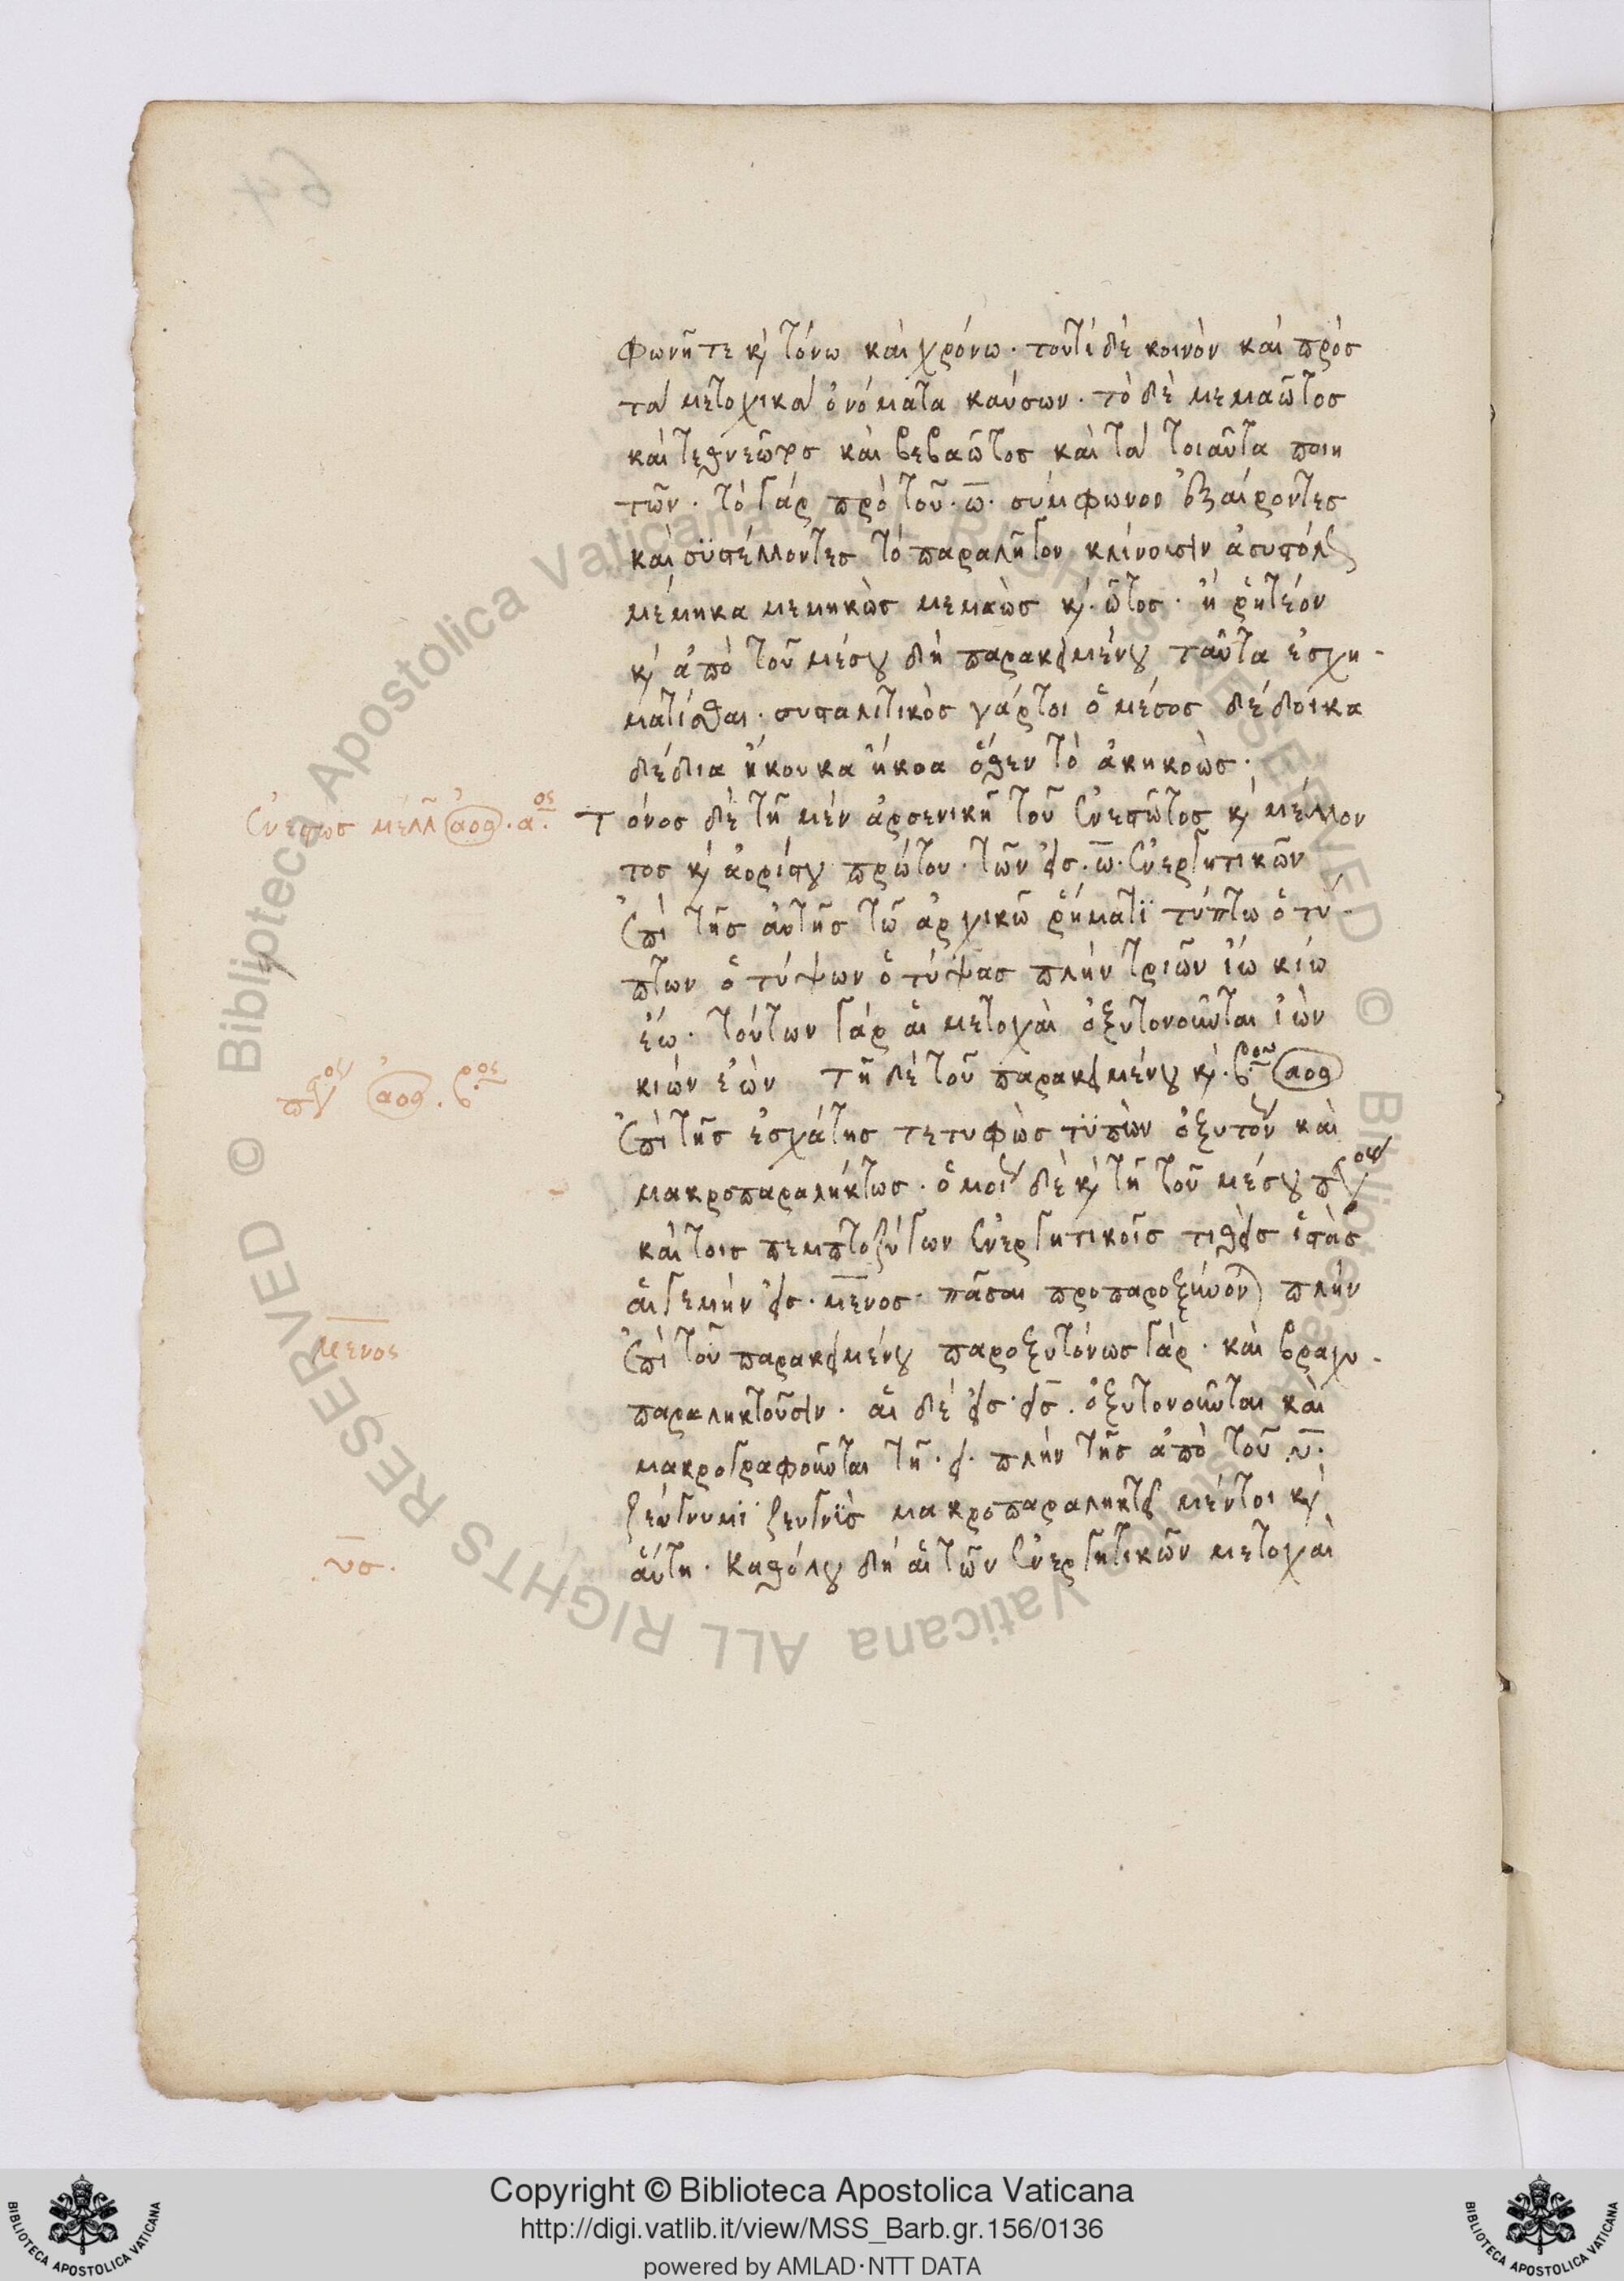 φωνῆ τε κỳ τόνω καὶ χρόνω · τουτὶ δὲ κοινὸν καὶ πρὸσ
τὰ μετοχικὰ ὀνόματα καύσων · τὸ δὲ μεμαῶτοσ
καὶ τεθνεῶτοσ καὶ βεβαῶτοσ καὶ τὰ τοιαῦτα ποιη
τῶν · τὸ γὰρ πρὸ τοῦ · ω̅ · σύμφωνον ἐξαίροντεσ
καὶ συστέλλοντεσ τὸ κλίνουσιν
μέμηκα μεμηκὼσ μεμαὼσ κỳ · ῶτοσ · ἢ ῥητέον
κỳ ἀπὸ τοῦ μέσου δὴ παρακειμένου ταῦτα ἐσχη-
ματίσθαι · συσταλτικὸσ γάρτοι ὁ μέσοσ δέδοικα
δέδια ἤκουκα ἤκοα ὅθεν τὸ ἀκηκοὼσ ·
Τόνοσ δὲ τῆ μὲν ἀρσενικῆ τοῦ ἐνεστῶτοσ κỳ μέλλον
τοσ κỳ ἀορίστου πρώτου · τῶν εἰσ · ω̅ · ἐνεργητικῶν
ἐπὶ τῆσ αὐτῆσ τῶ ἀρχικῶ ῥήματϊ τύπτω ὁ τύ-
πτων ὁ τύψων ὁ τύψασ πλὴν τριῶν ἰώ κίω
ἐώ · τούτων γὰρ αἱ μετοχαὶ ὀξυτονοῦνται ἰὼν
κιὼν ἐὼν τῆ δὲ τοῦ παρακειμένου κỳ · β̅ου αορ
ἐπὶ τῆσ ἐσχάτησ τετυφὼσ τϋπὼν ὀξυτόν καὶ
μακροπαραλήκτωσ · ὁμοί δὲ κỳ τῆ τοῦ μέσου
καὶ τοισ πεμπτοζύγων ἐνεργητικοῖσ τιθεὶσ ἱστὰσ
αἱ γεμὴν εἰσ · μενοσ · πᾶσαι προπαροξύνον πλὴν
ἐπὶ τοῦ παρακειμένου παροξυτόνωσ γάρ · καὶ βραχυ-
παραληκτοῦσιν · αἱ δὲ εἰσ · εισ · ὀξυτονοῦνται καὶ
μακρογραφοῦνται τῆ · ει · πλὴν τῆσ ἀπὸ τοῦ · υ̅ ·
ζεύγνυμϊ ζευγνὺσ μακροπαραληκτεῖ μέντοι κỳ
αὕτη · καθόλου δὴ αἱ τῶν ἐνεργητικῶν μετοχαὶ
ἐνεστωσ μελλ αορ · α̅οσ
αορ · β̅οσ
μενοσ
· υσ ·
Copyright © Biblioteca Apostolica Vaticana
http://digi.vatlib.it/view/MSS_Barb.gr.156/0136
powered by AMLAD·NTT DATA
© Biblioteca Apostolica Vaticana ALL RIGHTS RESERVED
© Biblioteca Apostolica Vaticana ALL RIGHTS RESERVED
BIBLIOTECA APOSTOLICA VATICANA
BIBLIOTECA APOSTOLICA VATICANA